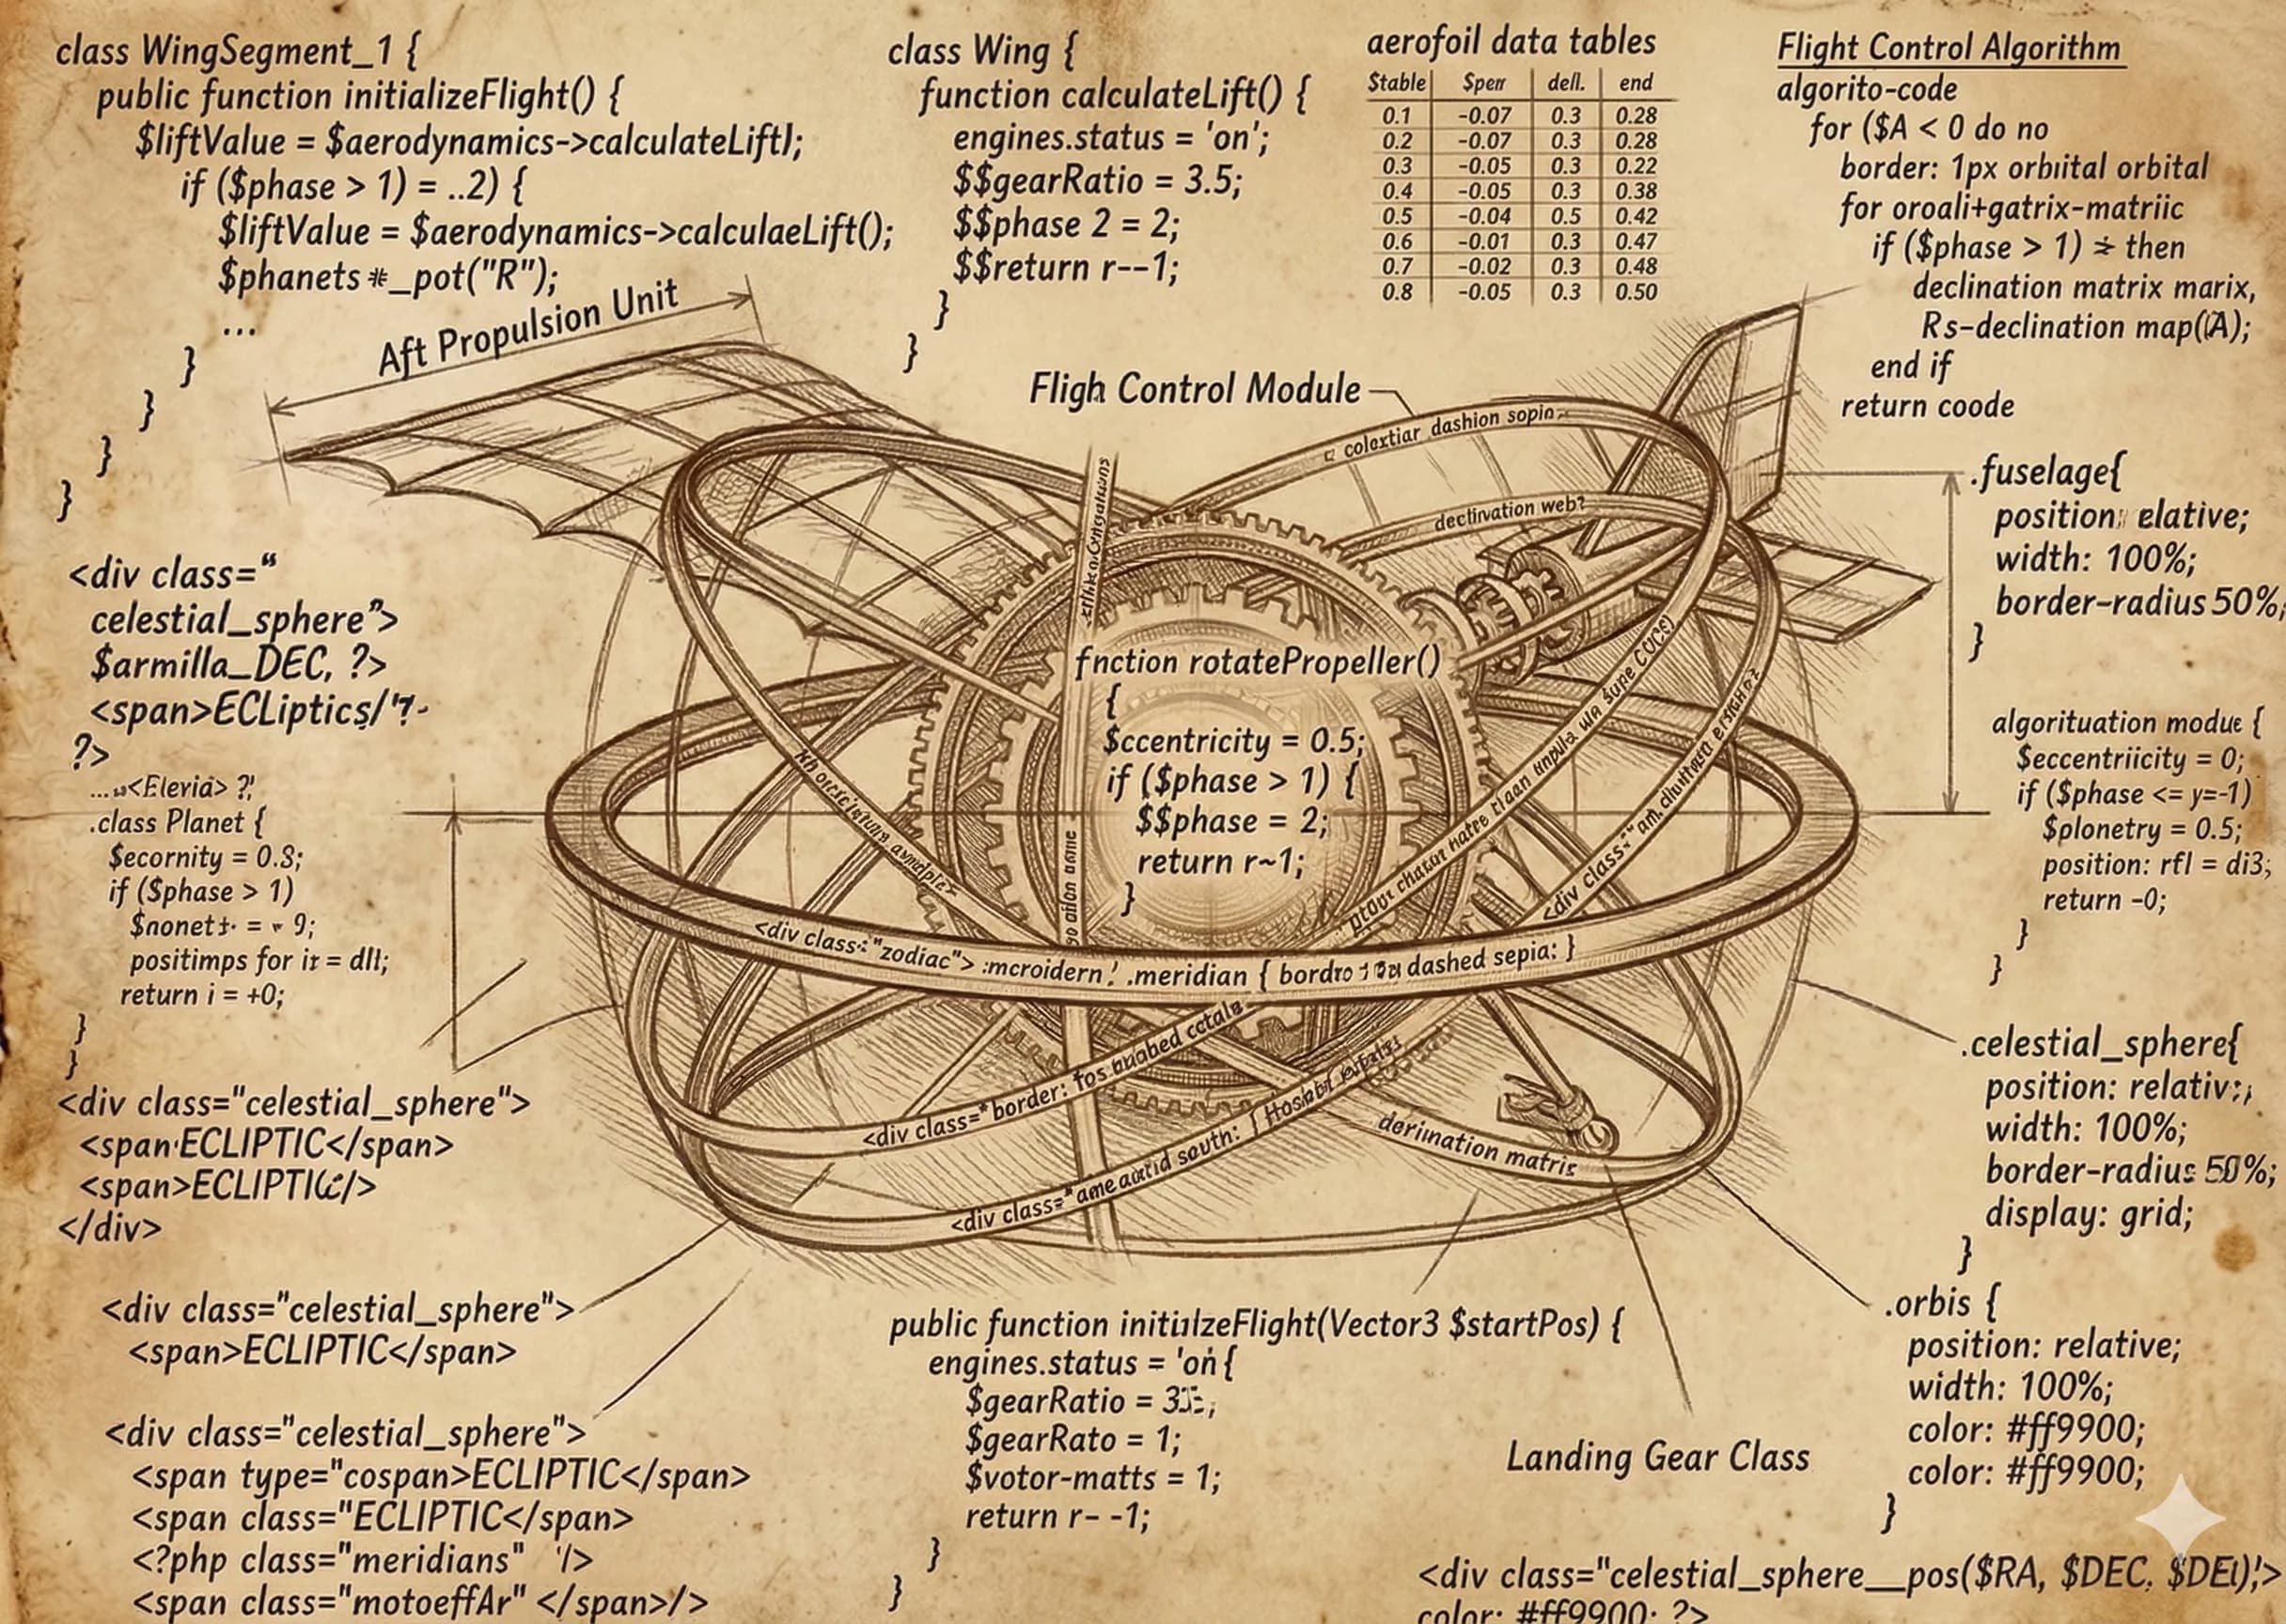 class WingSegment_1 {
public function initializeFlight() {
$liftValue = $aerodynamics->calculateLift);
if ($phase > 1) = ..2) {
$liftValue = $aerodynamics->calculaeLift();
$phanets*_pot("R");
...
}
}
}
}
Aft Propulsion Unit
class Wing {
function calculateLift() {
engines.status = 'on';
$$gearRatio = 3.5;
$$phase 2 = 2;
$$return r--1;
}
}
aerofoil data tables
$table $perr dell. end
0.1 -0.07 0.3 0.28
0.2 -0.07 0.3 0.28
0.3 -0.05 0.3 0.22
0.4 -0.05 0.3 0.38
0.5 -0.04 0.5 0.42
0.6 -0.01 0.3 0.47
0.7 -0.02 0.3 0.48
0.8 -0.05 0.3 0.50
Flight Control Algorithm
algorito-code
for ($A < 0 do no
border: 1px orbiital orbital
for oroali+gatrix-matriic
if ($phase > 1) then
declination matrix marix,
Rs-declination map((A);
end if
return coode
Fligh Control Module
colextiar dashion sopin
dectinvation web?
.fuselage{
position: elative;
width: 100%;
border-radius 50%;
}
<div class="
celestial_sphere">
$armilla_DEC, ?>
<span>ECLiptics/'?-
?>
<Elevia> ?'
.class Planet {
$ecornity = 0.3;
if ($phase > 1)
= 9;
positimps for = dll;
return i = +0;
}
}
fnction rotatePropeller()
{
$ccentricity = 0.5;
if ($phase > 1) {
$$phase = 2;
return r~1;
}
algorituation modue {
$eccentriicity = 0;
if ($phase <= y=-1)
$plonetry = 0.5;
position: rfl = di3;
return -0;
}
}
<div class="zodiac"> .meridian { dashed sepia: }
<div class:
<div class="border:
<div class=" south:
derimation matris
<div class="celestial_sphere">
<span ECLIPTIC</span>
<span>ECLIPTIC/>
</div>
.celestial_sphere{
position: relativ:;
width: 100%;
border-radius 50%;
display: grid;
}
<div class="celestial_sphere">
<span>ECLIPTIC</span>
<div class="celestial_sphere">
<span type="cospan>ECLIPTIC</span>
<span class="ECLIPTIC</span>
<?php class="meridians" '/>
<span class="motoeffAr" </span>/>
public function initiulzeFlight(Vector3 $startPos) {
engines.status = 'on {
$gearRatio =
$gearRato = 1;
$votor-matts = 1;
return r- -1;
}
}
Landing Gear Class
.orbis {
position: relative;
width: 100%;
color: #ff9900;
color: #ff9900;
}
<div class="celestial_sphere__pos($RA, $DEC, $DEl);'>
color: #ff9900; ?>